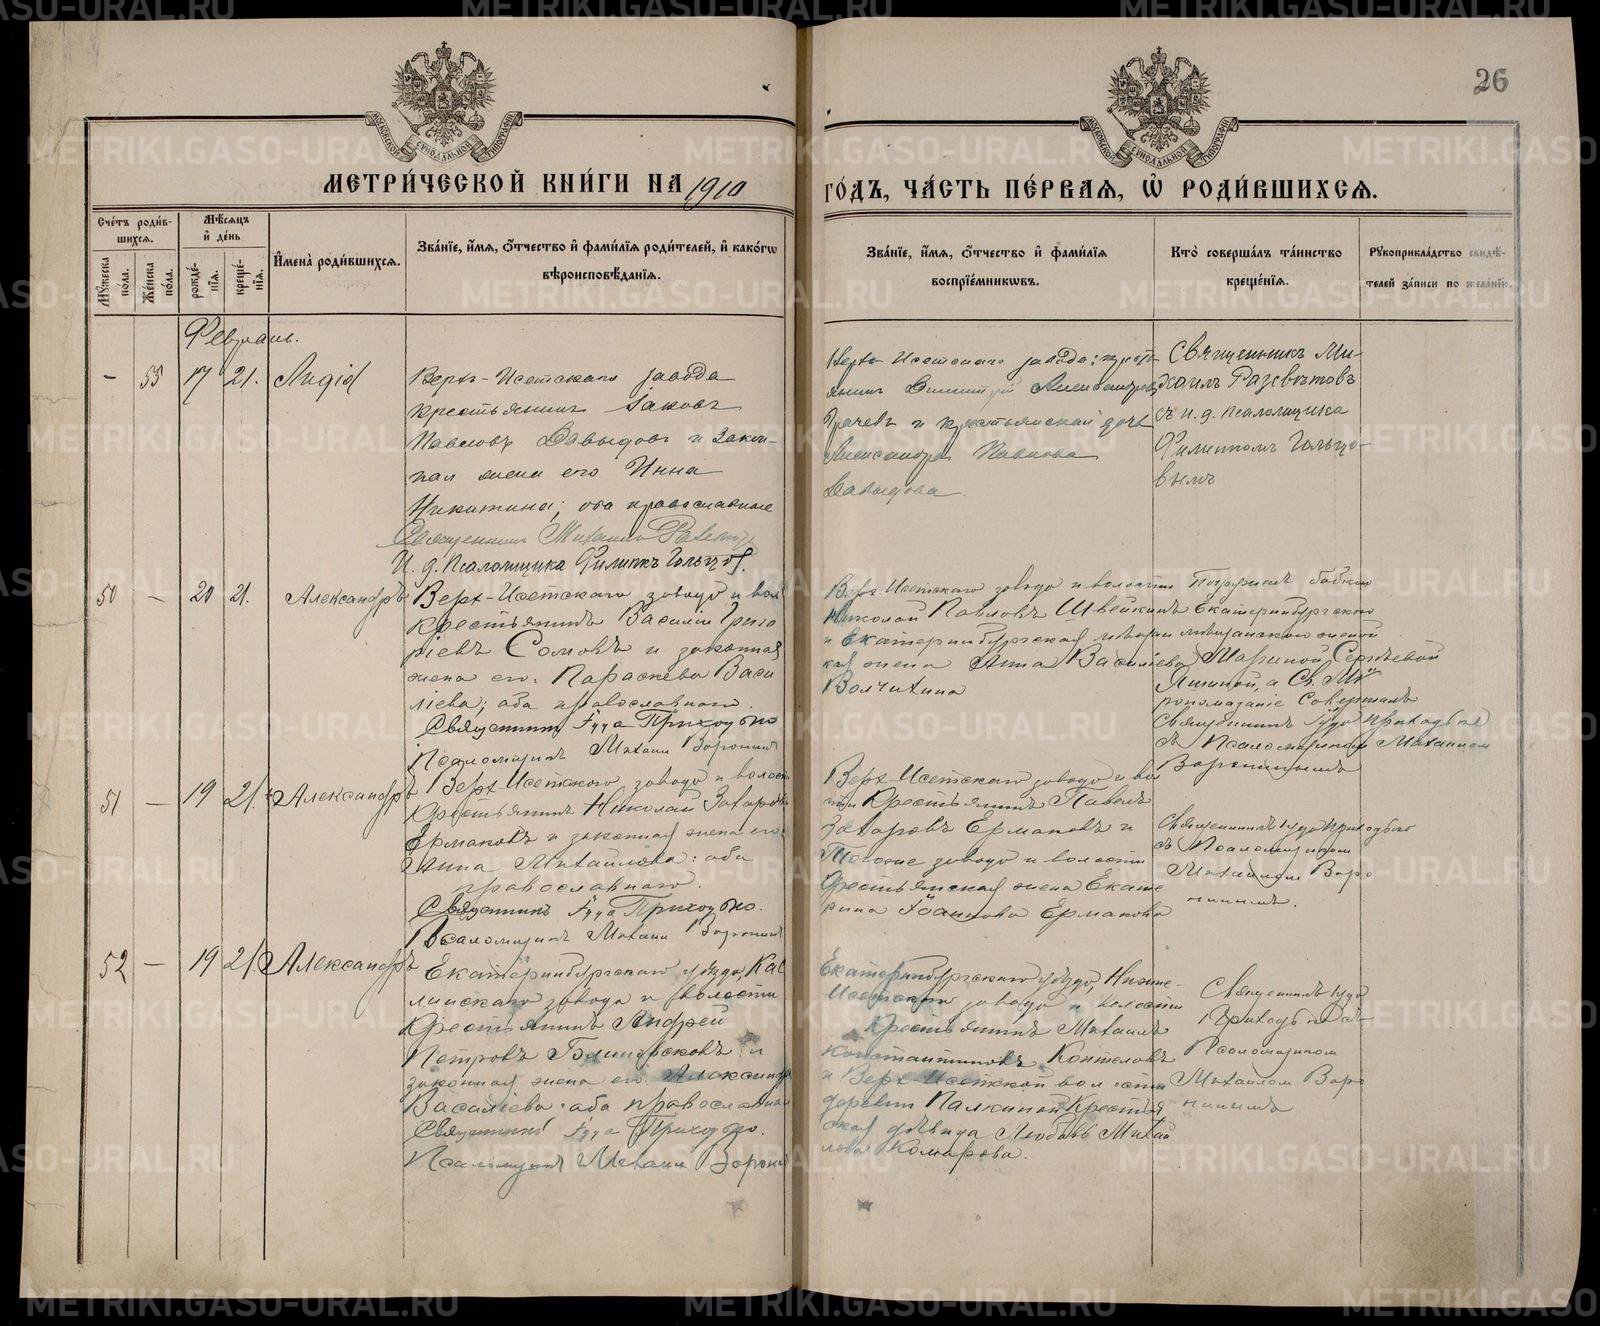 26
МЕТРИ́ЧЕСКОЙ КНИ́ГИ НА 1910 ГО́ДЪ, ЧА́СТЬ ПЕ́РВАЯ, Ѡ҆ РОДИ́ВШИХСѦ.
Сче́тъ роди́в-
шихсѧ.
Мꙋ́жеска по́ла.
Же́нска по́ла.
Мѣ́сѧцъ
и҆ де́нь
рожде́-
нїѧ.
креще́-
нїѧ.
И҆мена̀ роди́вшихсѧ.
Зва́нїе, и҆́мѧ, ѻ҆́тчество и҆ фами́лїѧ роди́телей, и҆ како́гѡ
вѣроисповѣ́данїѧ.
Зва́нїе, и҆́мѧ, ѻ҆́тчество и҆ фами́лїѧ
воспрїе́мникѡвъ.
Кто̀ соверша́лъ та́инство
креще́нїѧ.
Рꙋкоприкла́дство свидѣ́-
телей за́писи по жела́нїю.
Февраль.
— 55 17 21. Лидія
Верхъ-Исетскаго завода
крестьянинъ Іаковъ
Павловъ Давыдовъ и закон-
ная жена его Инна
Никитина; оба православные
Священникъ Михаилъ
И. д. Псаломщика Филиппъ Гольцов.
Верхъ-Исетскаго завода: кресть-
янинъ Димитрій Александровъ
Грачевъ и крестьянская дочь
Александра Павлова
Давыдова.
Священникъ Ми-
хаилъ Разсвѣтовъ
съ и. д. псаломщика
Филиппомъ Гольцо-
вымъ
50 — 20 21. Александръ
Верх-Исетскаго завода и вол
Крестьянинъ Василій Григо
ріевъ Сомовъ и законная
жена его Параскева Васи
ліева; оба православнаго.
Священникъ Іуда Приходько
Псаломщикъ Михаил Воронинъ
Верх-Исетскаго завода и волости
Николай Павловъ Швейкинъ
и Екатеринбургская
кая жена Анна Василіева
Волчихина
Погружен бабкою
Екатеринбургскою
мѣщанскою женой
Мариной Сергѣевой
а Св. Мѵ
ропомазаніе Совершалъ
Священникъ Іуда Приходько
съ Псаломщикомъ Михаиломъ
Воронинымъ
51 — 19 21. Александръ
Верх-Исетскаго завода и волост
Крестьянинъ Николай Захаровъ
Ермаковъ и законная жена его
Анна Михайлова: оба
православнаго.
Священникъ Іуда Приходько.
Псаломщикъ Михаил Воронинъ
Верх-Исетскаго завода и во
Крестьянинъ Павелъ
Захаровъ Ермаковъ и
завода и волости
Крестьянская жена Екате
рина Іоаннова Ермакова
Священникъ Іуда Приходько
съ Псаломщикомъ
Михаилом Воро
нинымъ.
52 — 19 21. Александръ
Екатеринбургскаго уѣзда, Кас
линскаго завода и волости
Крестьянинъ Андрей
Петровъ и
законная жена его Александра
Василіева: оба православнаго
Священникъ Іуда Приходько.
Псаломщикъ Михаил Воронин
Екатеринбургскаго уѣзда, Нижне-
Исетскаго завода и волости
Крестьянинъ Михаилъ
Константиновъ Коптеловъ
и Верх-Исетской волости
деревни Палкиной Крестьян
ская дѣвица Любовь Михай
лова Комарова.
Священникъ Іуда
Приходько съ
Псаломщиком
Михаилом Воро
нинымъ
METRIKI.GASO-URAL.RU